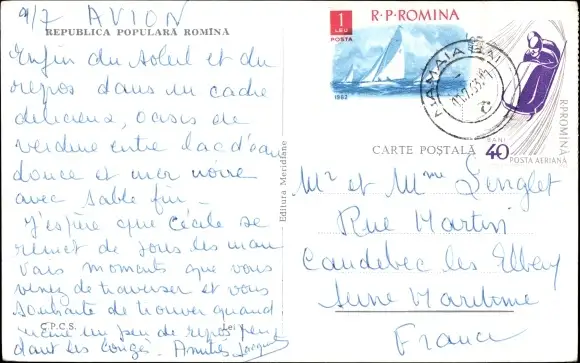 9/7 AVION
REPUBLICA POPULARĂ ROMÎNĂ
Enfin du soleil et du
repos dans un cadre
délicieux, oasis de
verdure entre lac d'eau
douce et mer noire
avec sable fin -
J'espère que Cécile se
remet de tous les mau
vais moments que vous
venez de traverser et vous
souhaite de trouver quand
même un peu de repos pen
dant les congés. Amitiés Jacques
C.P.C.S.
Lei
Editura Meridiane
1
LEU
POSTA
R.P.ROMINA
1962
MAMAIA BAI
R.P.ROMINA
BANI
40
POSTA AERIANA
CARTE POȘTALĂ
Mr et Mme Lenglet
Rue Martin
Caudebec les Elbeuf
Seine Maritime
France